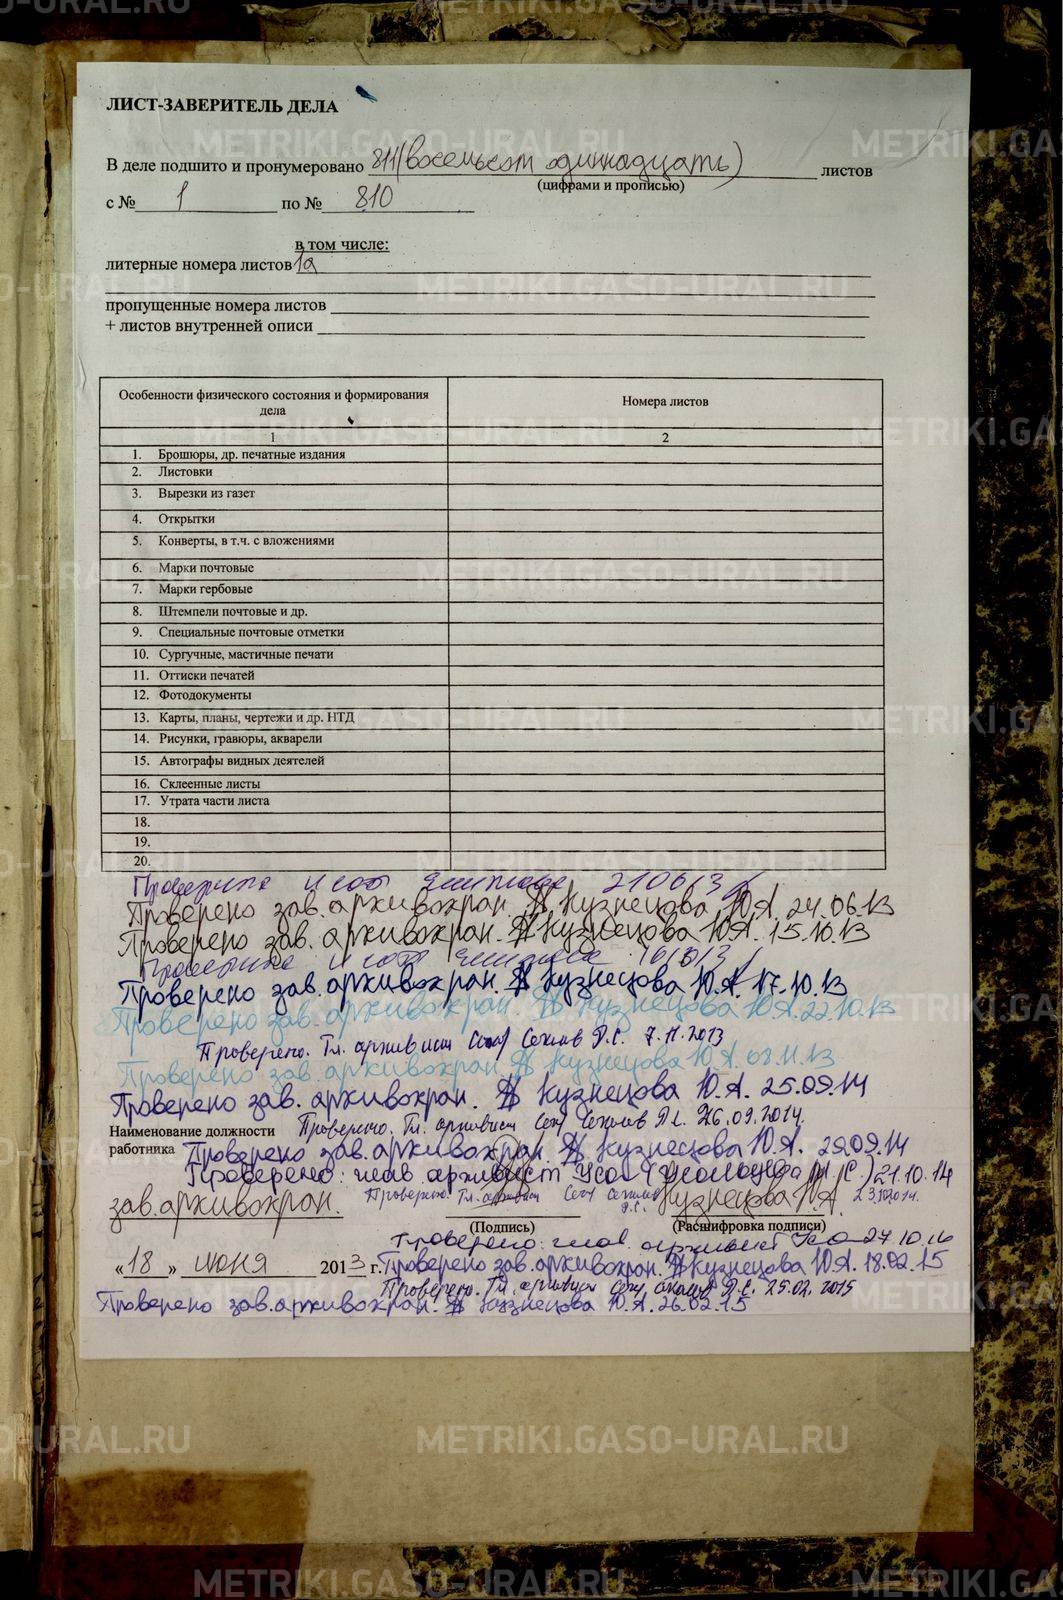 ЛИСТ-ЗАВЕРИТЕЛЬ ДЕЛА
В деле подшито и пронумеровано 811 (восемьсот одиннадцать) листов
(цифрами и прописью)
с № 1 по № 810
в том числе:
литерные номера листов 1а
пропущенные номера листов
+ листов внутренней описи
Особенности физического состояния и формирования дела Номера листов
1 2
1. Брошюры, др. печатные издания
2. Листовки
3. Вырезки из газет
4. Открытки
5. Конверты, в т.ч. с вложениями
6. Марки почтовые
7. Марки гербовые
8. Штемпели почтовые и др.
9. Специальные почтовые отметки
10. Сургучные, мастичные печати
11. Оттиски печатей
12. Фотодокументы
13. Карты, планы, чертежи и др. НТД
14. Рисунки, гравюры, акварели
15. Автографы видных деятелей
16. Склеенные листы
17. Утрата части листа
18.
19.
20.
210613
Проверено зав. архивохран. Кузнецова Ю.А. 24.06.13
Проверено зав. архивохран. Кузнецова Ю.А. 15.10.13
Проверено зав. архивохран. Кузнецова Ю.А. 17.10.13
Проверено зав. архивохран. Кузнецова Ю.А. 22.10.13
Проверено. Гл. архивист 7.11.2013
Проверено зав. архивохран. Кузнецова Ю.А. 08.11.13
Проверено зав. архивохран. Кузнецова Ю.А. 25.09.14
Проверено. Гл. архивист 26.09.2014
Наименование должности
работника Проверено зав. архивохран. Кузнецова Ю.А. 29.09.14
Проверено: глав. архивист 21.10.14
зав. архивохран. Проверено. Гл. архивист Кузнецова Ю.А. 23.10.2014.
(Подпись) (Расшифровка подписи)
Проверено: глав. архивист 27.10.14
«18» июня 2013 г. Проверено зав. архивохран. Кузнецова Ю.А. 18.02.15
Проверено. Гл. архивист 25.02.2015
Проверено зав. архивохран. Кузнецова Ю.А. 26.02.15
METRIKI.GASO-URAL.RU